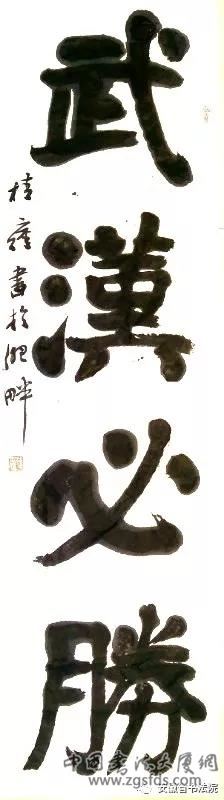 武漢必勝
桂雍書於肥畔
中国书法大厦网
www.zgsfds.com
安徽省书法院